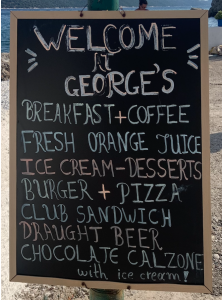 WELCOME
AT
GEORGE'S
BREAKFAST + COFFEE
FRESH ORANGE JUICE
ICE CREAM - DESSERTS
BURGER + PIZZA
CLUB SANDWICH
DRAUGHT BEER
CHOCOLATE CALZONE
with ice cream!